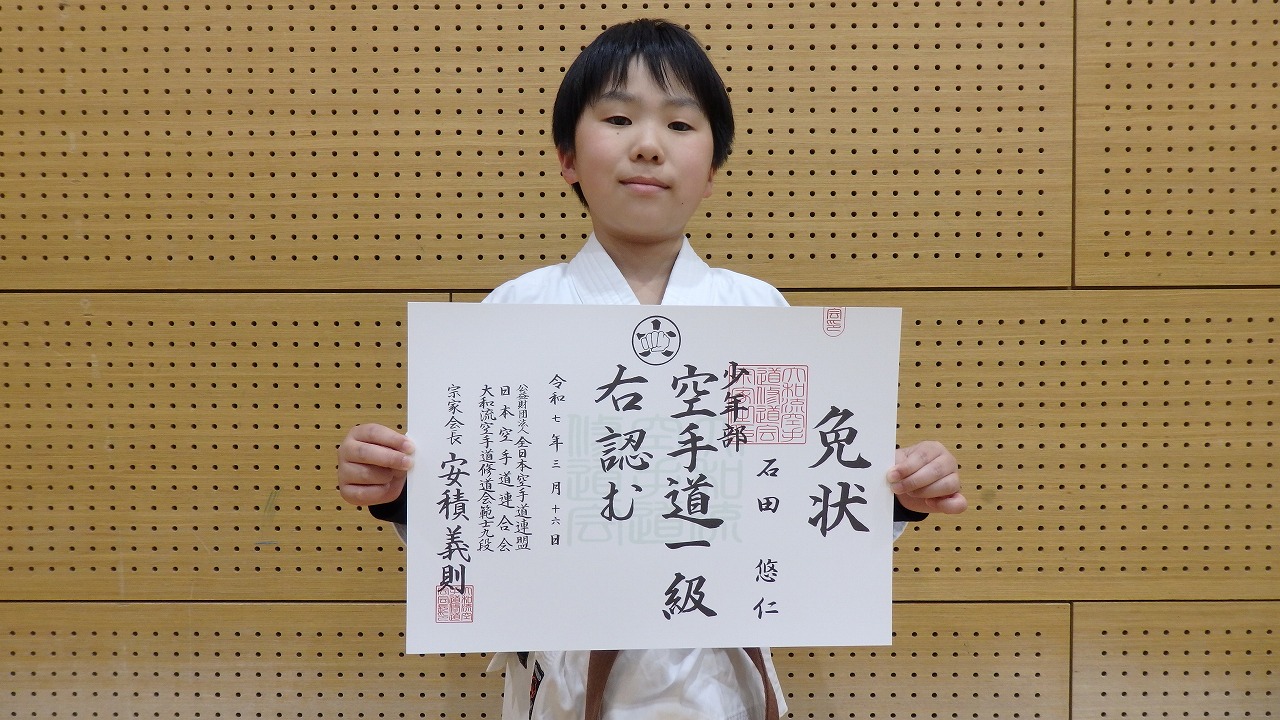 免状
石田 悠仁
少年部
空手道一級
右認む
令和七年三月十六日
公益財団法人全日本空手道連盟
日本空手道連合会
大和流空手道修道会範士九段
宗家会長 安積義則